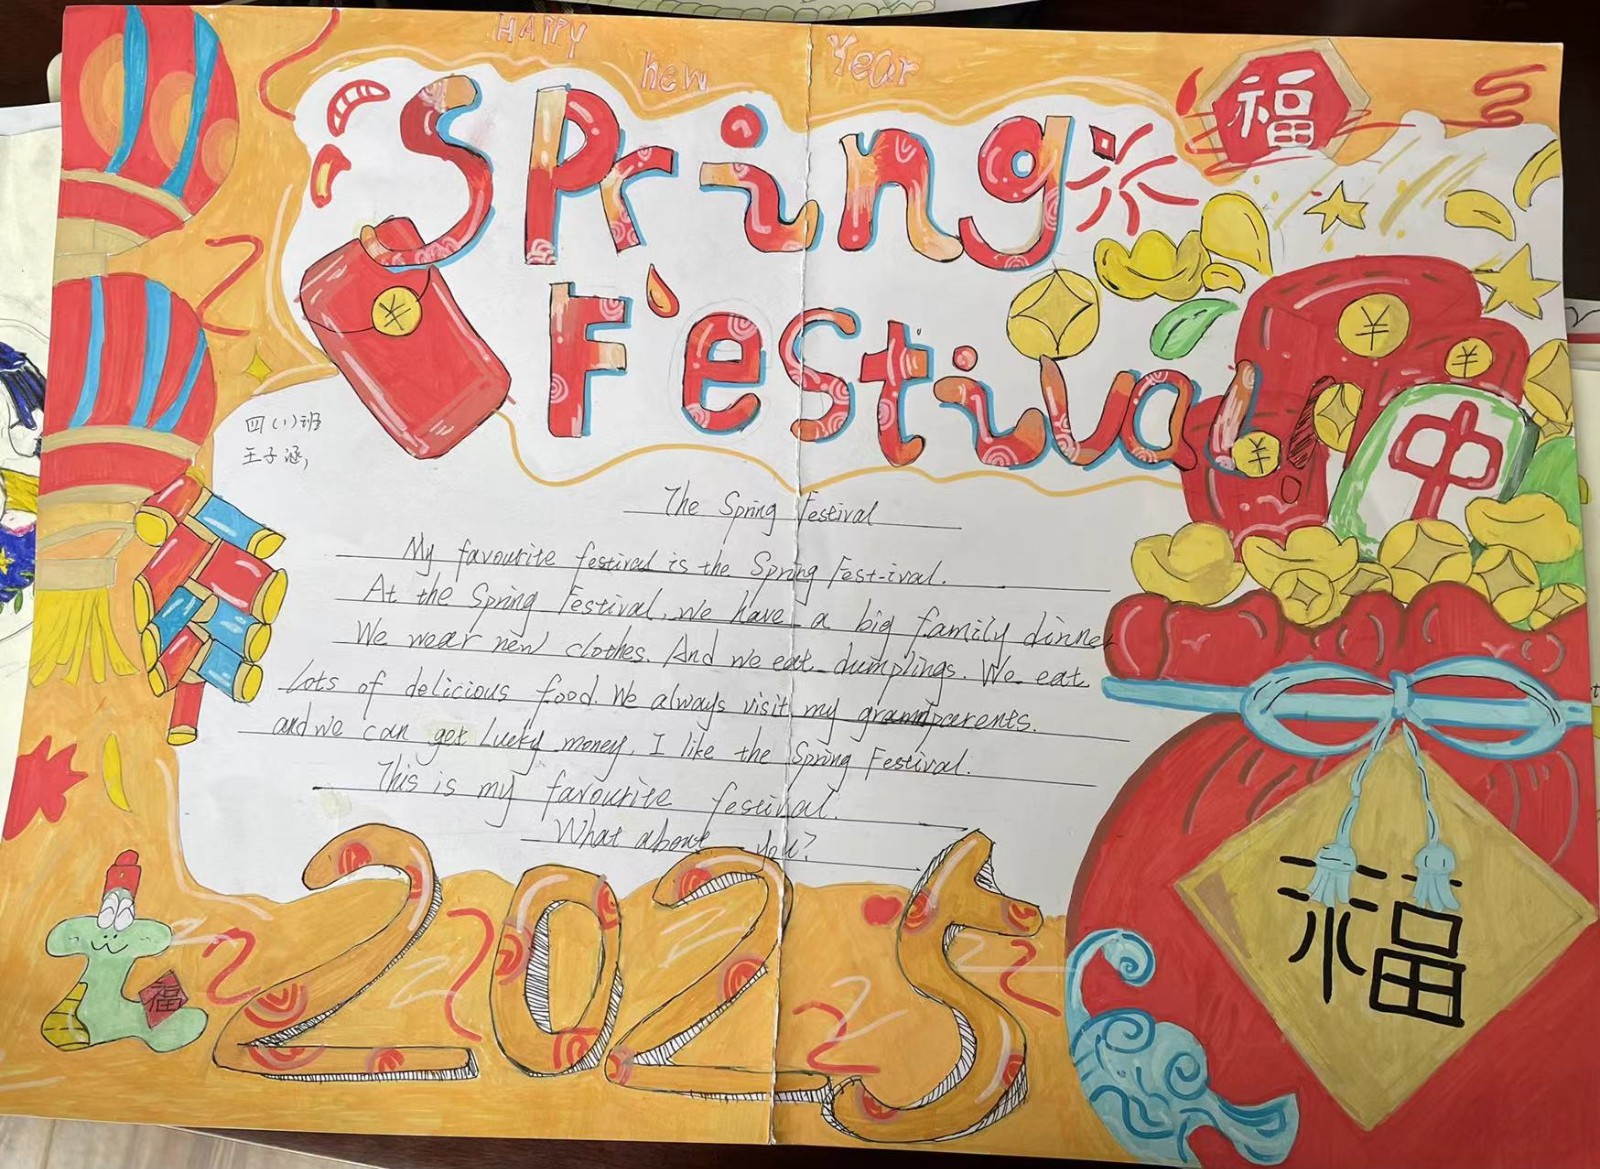 HAPPY new Year
福
Spring
Festival
¥
¥
¥
¥
中
四(1)班
王子涵,
The Spring Festival
My favourite festival is the Spring Fest-ival.
At the Spring Festival, we have a big family dinner
We wear new clothes. And we eat dumplings. We eat
lots of delicious food. We always visit my grandparents.
and we can get lucky money. I like the Spring Festival.
This is my favourite festival.
What about you?
福
福
2025